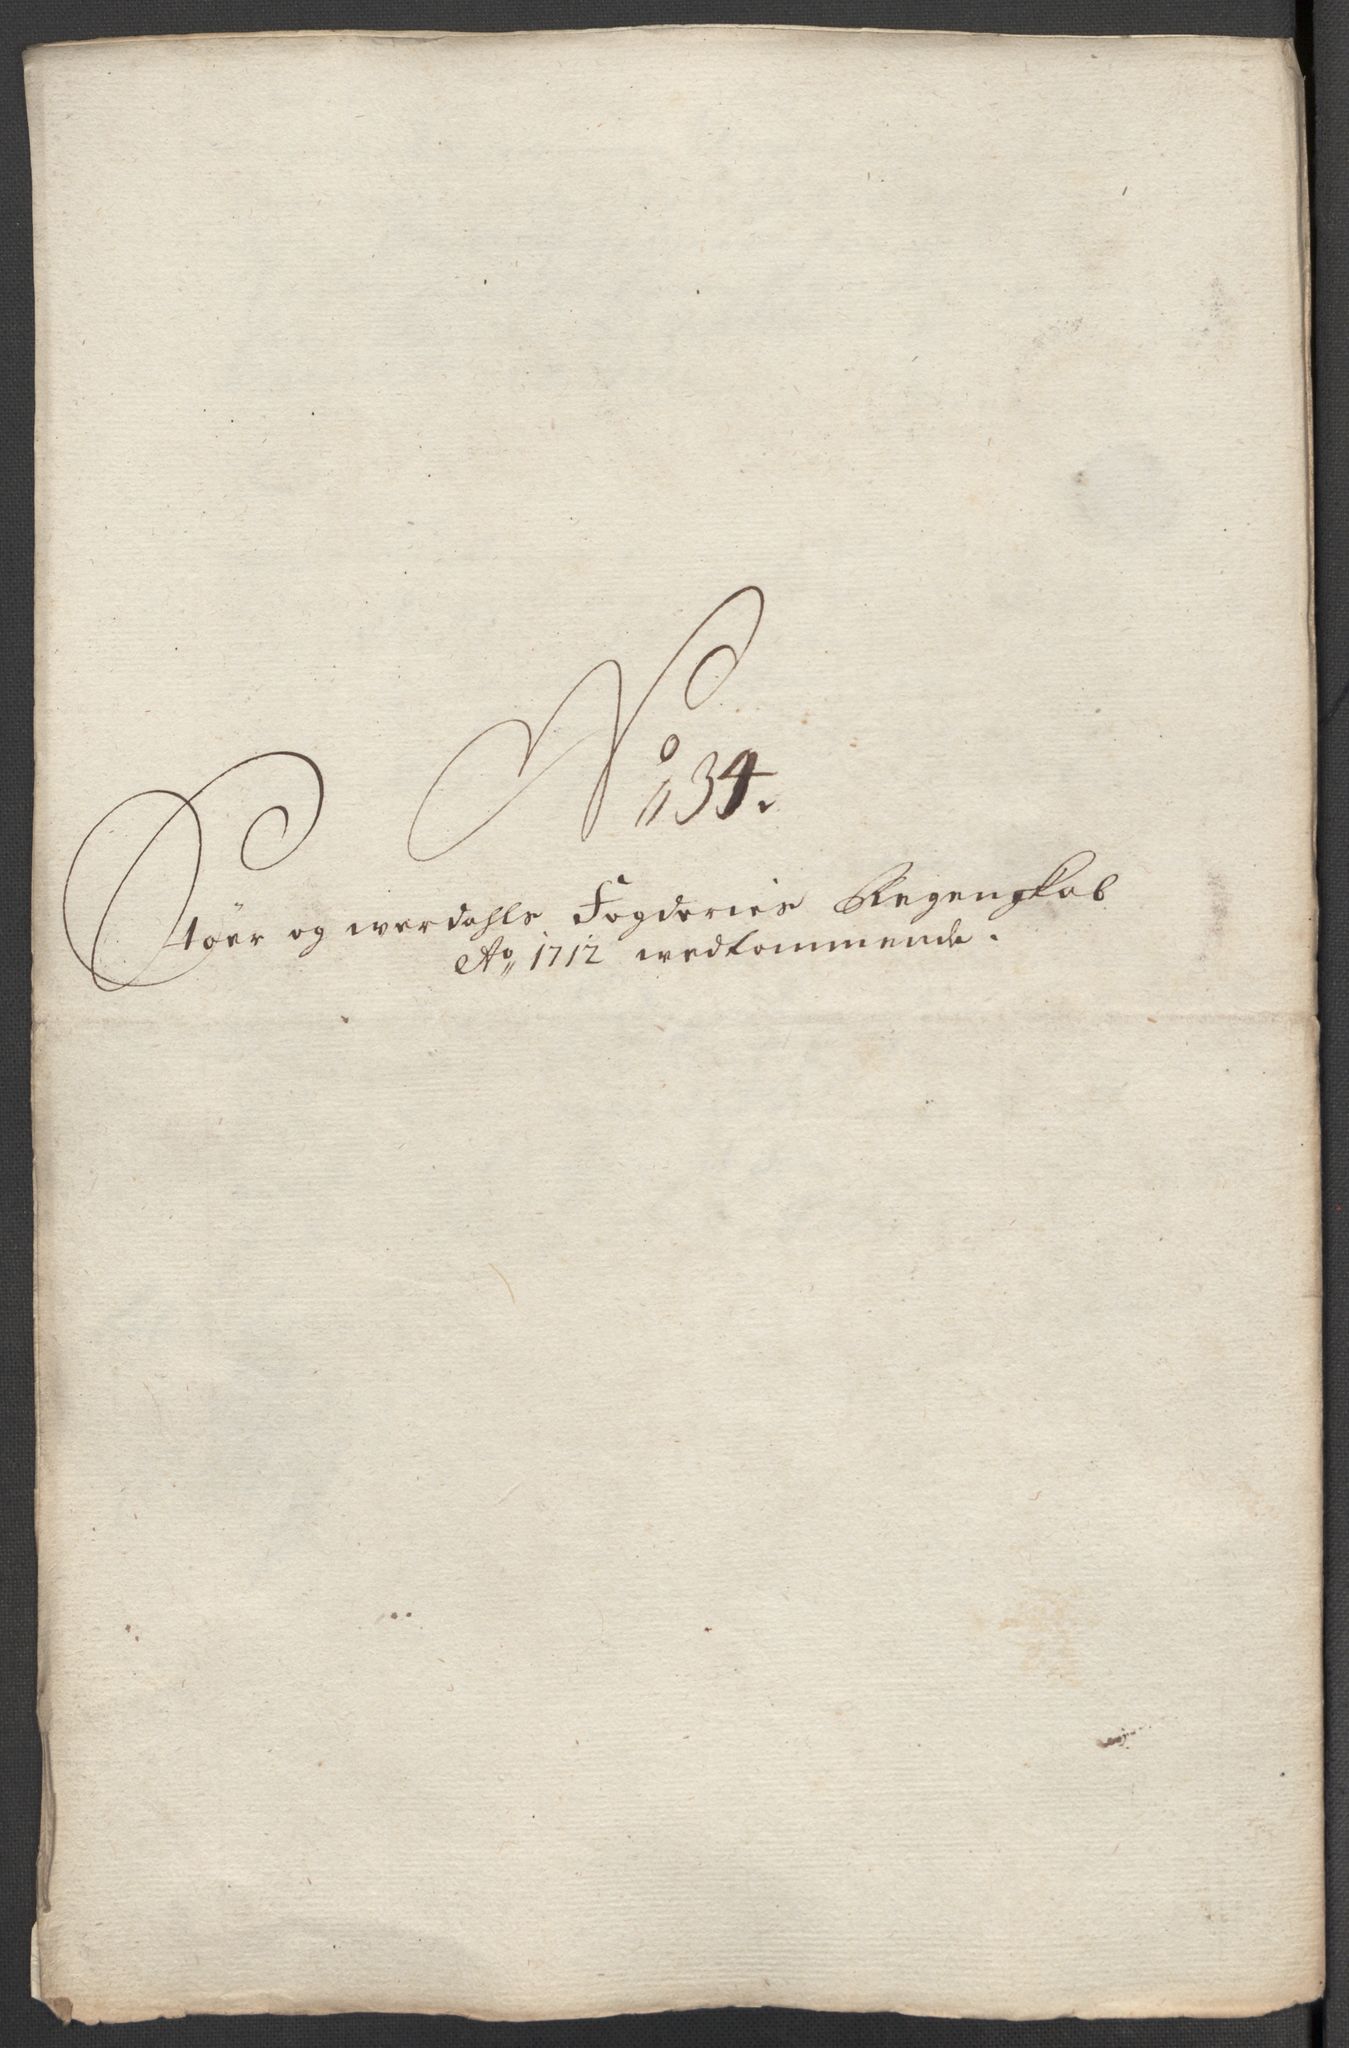 No 34.
Støer og werdahls Fogderies Regenskab
Ao 1712 wedkommende.